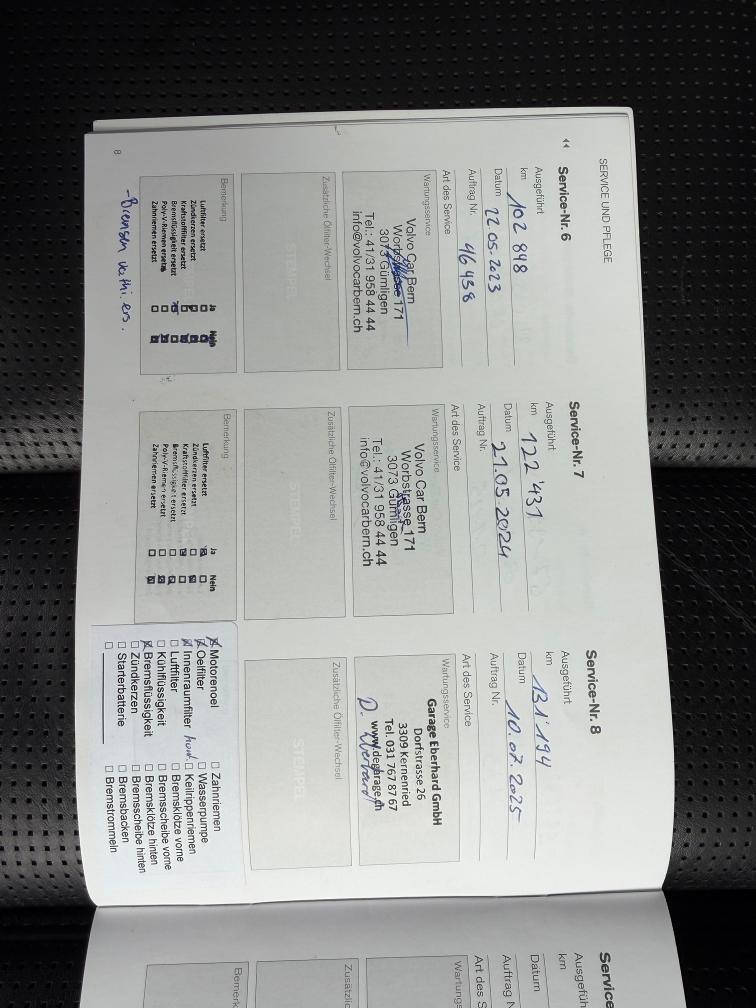 SERVICE UND PFLEGE
Service-Nr. 6
Ausgeführt
km 102 848
Datum 22.05.2023
Auftrag Nr. 46438
Art des Service
Wartungsservice
Volvo Car Bern
Worbstrasse 171
3073 Gümligen
Tel.: 41/31 958 44 44
info@volvocarbern.ch
Zusätzliche Ölfilter-Wechsel
STEMPEL
Bemerkung
Ja Nein
Luftfilter ersetzt
Zündkerzen ersetzt
Kraftstofffilter ersetzt
Bremsflüssigkeit ersetzt
Poly-V-Riemen ersetzt
Zahnriemen ersetzt
- Bremsen
8
Service-Nr. 7
Ausgeführt
km 122'431
Datum 21.05.2024
Auftrag Nr.
Art des Service
Wartungsservice
Volvo Car Bern
Worbstrasse 171
3073 Gümligen
Tel.: 41/31 958 44 44
info@volvocarbern.ch
Zusätzliche Ölfilter-Wechsel
Bemerkung
Ja Nein
Luftfilter ersetzt
Zündkerzen ersetzt
Kraftstofffilter ersetzt
Bremsflüssigkeit ersetzt
Poly-V-Riemen ersetzt
Zahnriemen ersetzt
Service-Nr. 8
Ausgeführt
km 131'194
Datum 10.07.2025
Auftrag Nr.
Art des Service
Wartungsservice
Garage Eberhard GmbH
Dorfstrasse 26
3309 Kernenried
Tel. 031 767 87 67
www.degarage.ch
D. Eberhard
Zusätzliche Ölfilter-Wechsel
STEMPEL
Motorenoel
Oelfilter
Innenraumfilter
Luftfilter
Kühlflüssigkeit
Bremsflüssigkeit
Zündkerzen
Starterbatterie
Zahnriemen
Wasserpumpe
Keilrippenriemen
Bremsklötze vorne
Bremsscheibe vorne
Bremsklötze hinten
Bremsscheibe hinten
Bremsbacken
Bremstrommeln
Service
Ausgeführt
km
Datum
Auftrag N
Art des S
Wartungs
Zusätzlic
Bemerk